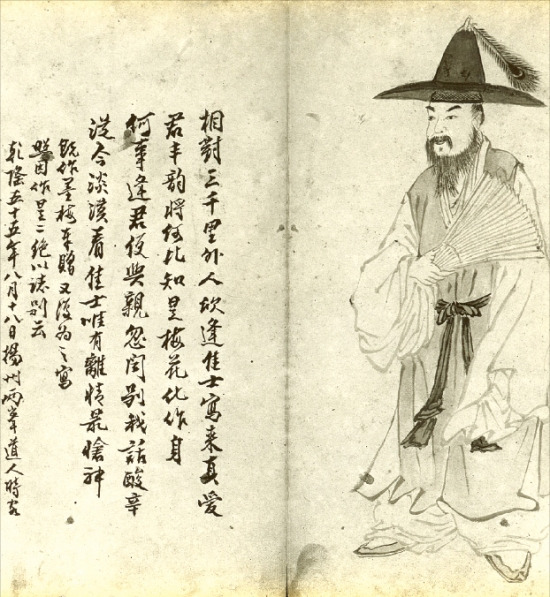 相對三千里外人欣逢佳士寫来真愛
君丰韵將何比知是梅花化作身
何事逢君便與親忽聞別我話酸辛
從今淡漠看佳士唯有離情最愴神
既作墨梅奉贈又復為之寫
照因作是二絕以誌別云
乾隆五十五年八月十八日揚州兩峯道人時客